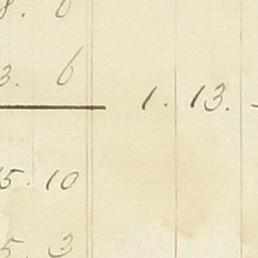 8. 6
3. 6
1. 13. -
5. 10
5. 3